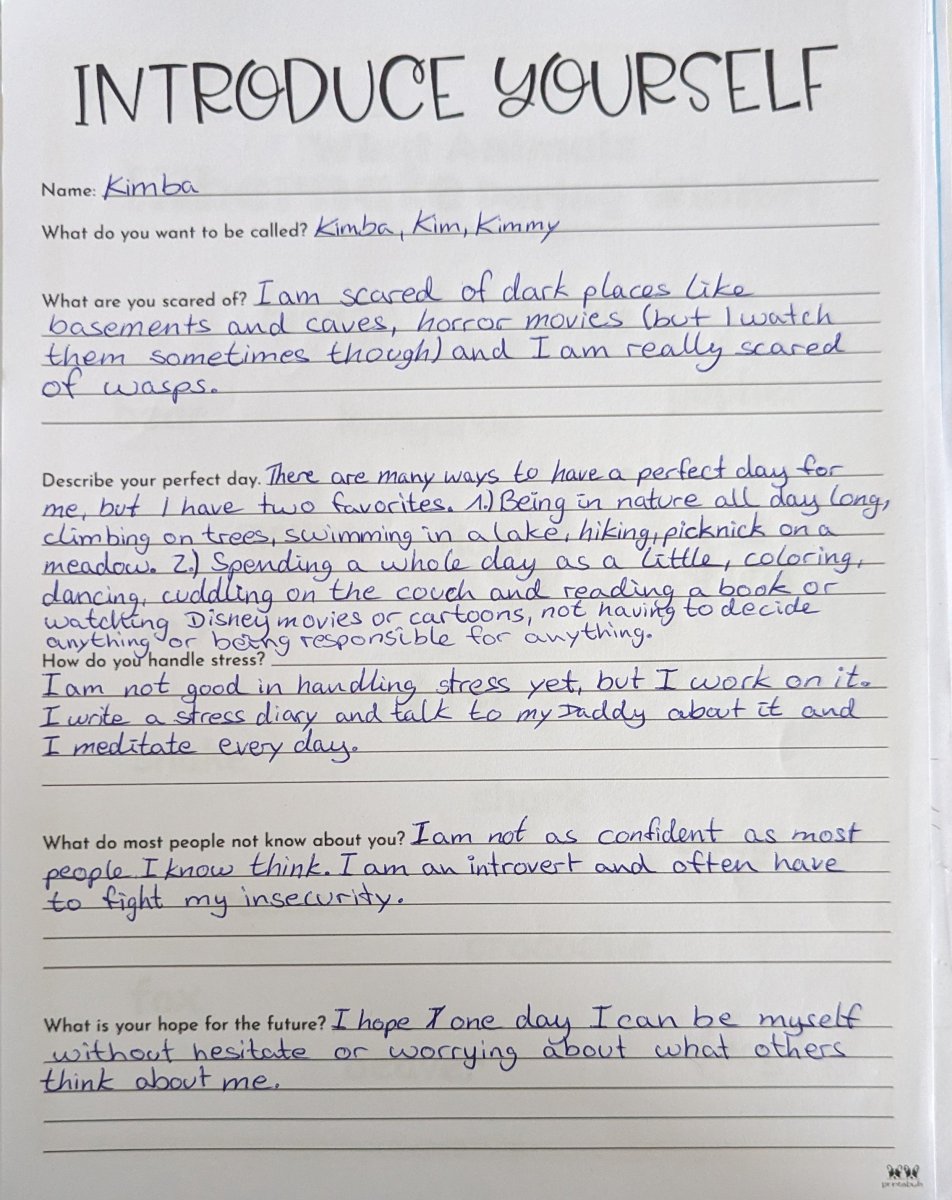 INTRODUCE YOURSELF
Name: Kimba
What do you want to be called? Kimba, Kim, Kimmy
What are you scared of? I am scared of dark places like
basements and caves, horror movies (but I watch
them sometimes though) and I am really scared
of wasps.
Describe your perfect day. There are many ways to have a perfect day for
me, but I have two favorites. 1.) Being in nature all day long,
climbing on trees, swimming in a lake, hiking, picknick on a
meadow. 2.) Spending a whole day as a little, coloring,
dancing, cuddling on the couch and reading a book or
watching Disney movies or cartoons, not having to decide
anything or being responsible for anything.
How do you handle stress?
I am not good in handling stress yet, but I work on it.
I write a stress diary and talk to my Daddy about it and
I meditate every day.
What do most people not know about you? I am not as confident as most
people I know think. I am an introvert and often have
to fight my insecurity.
What is your hope for the future? I hope one day I can be myself
without hesitate or worrying about what others
think about me.